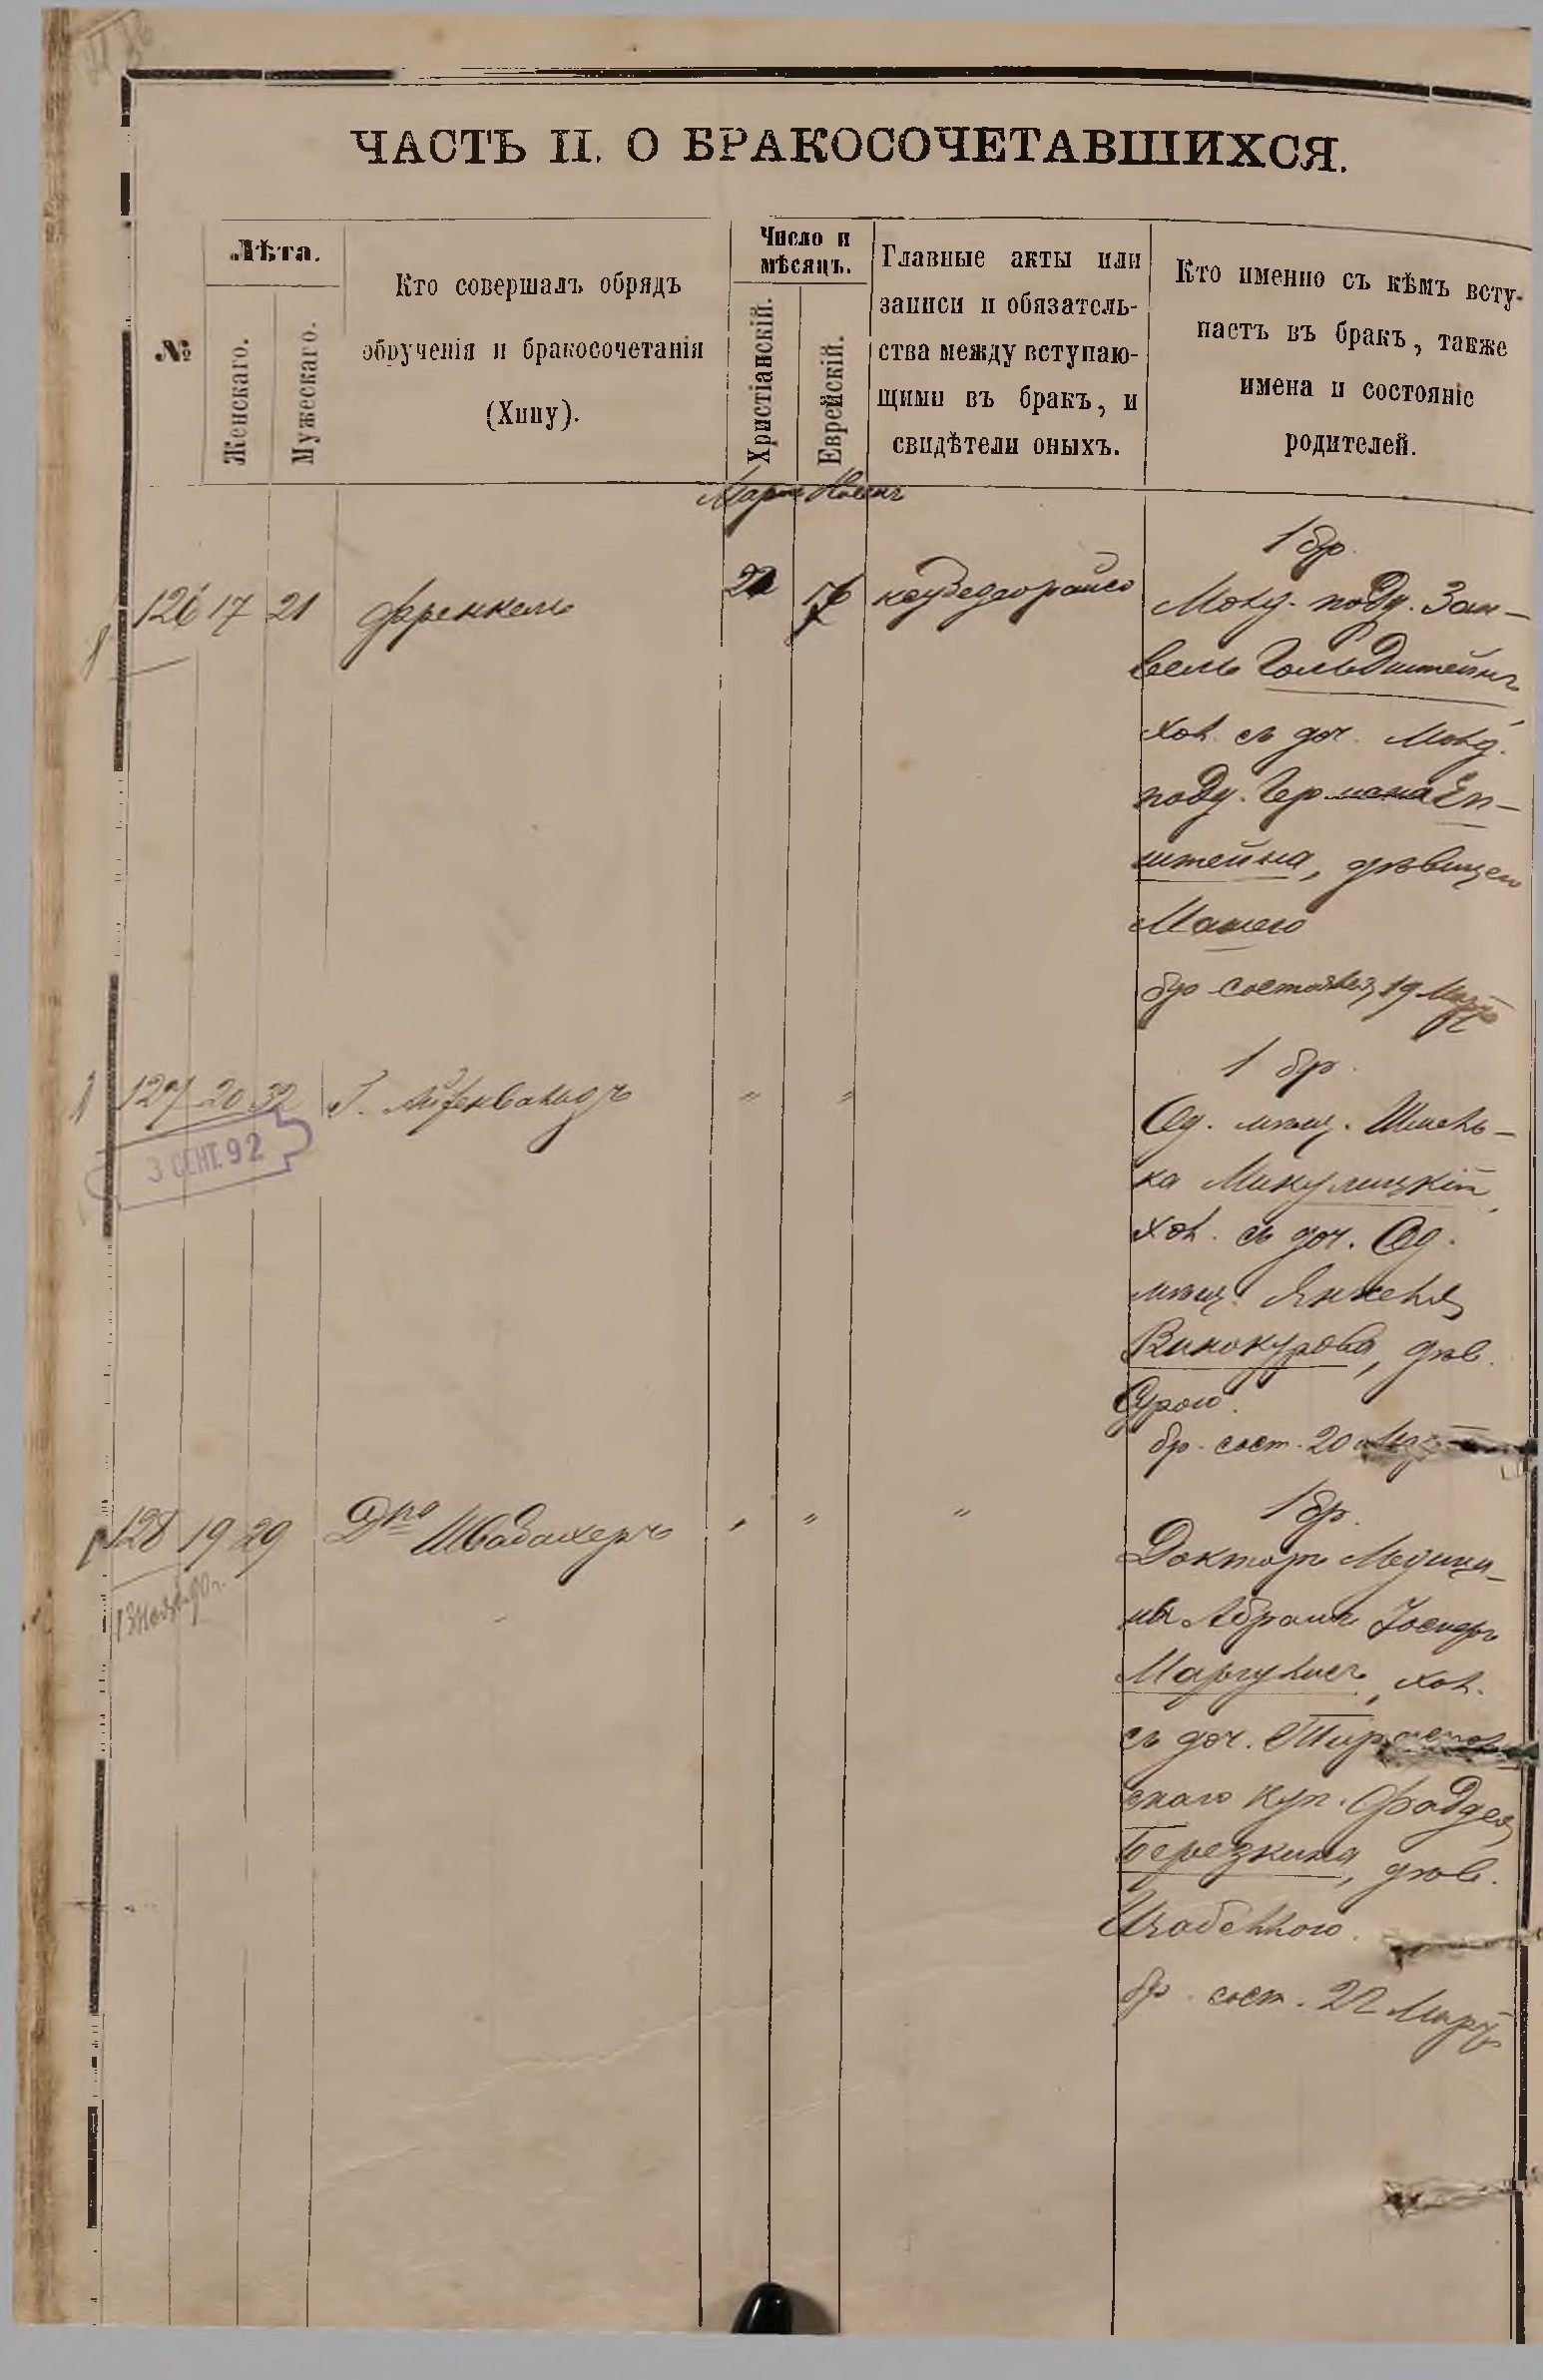 ЧАСТЬ II. О БРАКОСОЧЕТАВШИХСЯ.
№
Лѣта.
Женскаго.
Мужескаго.
Кто совершалъ обрядъ
обрученія и бракосочетанія
(Хипу).
Число и
мѣсяцъ.
Христіанскій.
Еврейскій.
Главные акты или
записи и обязатель-
ства между вступаю-
щими въ бракъ, и
свидѣтели оныхъ.
Кто именно съ кѣмъ всту-
паетъ въ бракъ, также
имена и состояніе
родителей.
Мартъ
126 17 21 Френкель
1 бр.
Молд. подд. Зан-
вель Гольдштейнъ,
хол. съ доч. Молд.
подд. Германа Эп-
штейна, дѣвицею
Машею
бр состоялся 19 Марта
127 20 32
3 СЕНТ. 92
" "
1 бр.
Од. мѣщ. Шмель-
ка Микулицкій,
хол. съ доч. Од.
мѣщ. Янкеля
Винокурова, дѣв.
Сурою.
бр. сост. 20
128 19 29 Дръ Швабахеръ " " "
1 бр.
Докторъ Медици-
ны Абрамъ Іосифъ
Маргулисъ, хол.
съ доч.
скаго куп. Фаддея
Березкина, дѣв.
Изабеллою.
бр. сост. 22 Марта